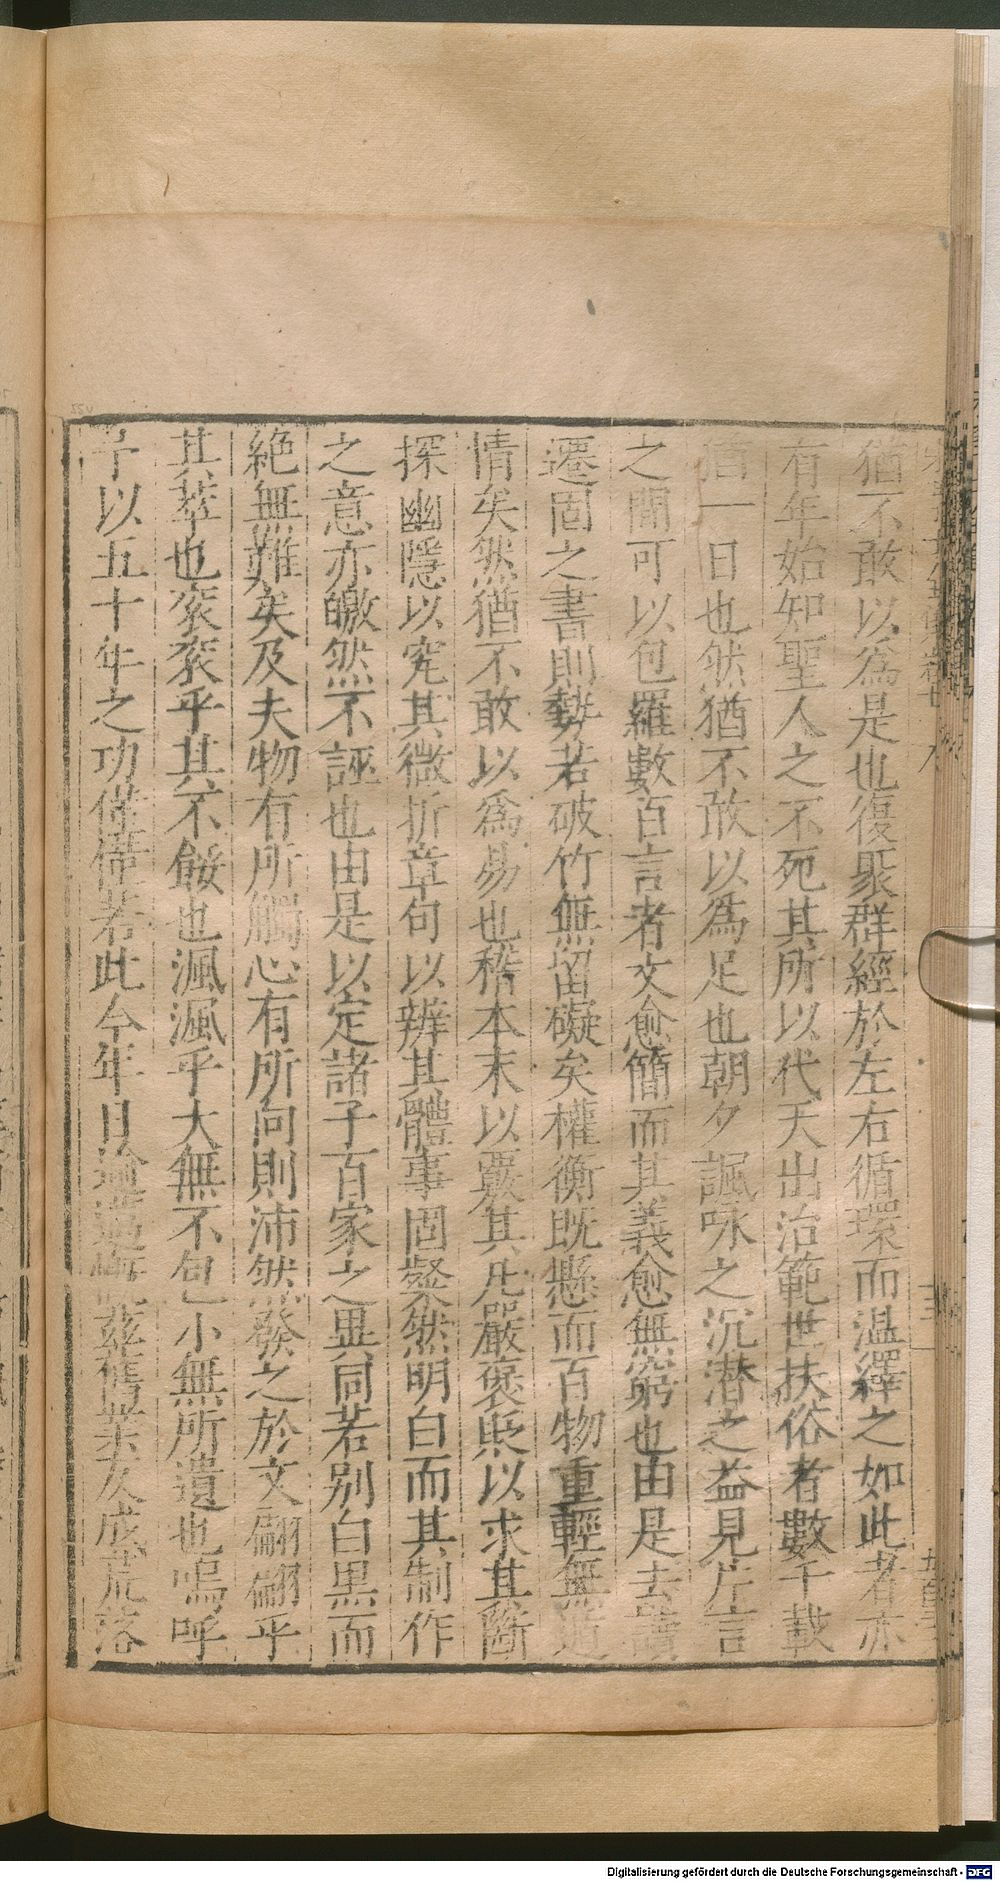 猶不敢以爲是也復聚群經於左右循環而温繹之如此者亦
有年始知聖人之不死其所以代天出治範世扶俗者數千載
猶一日也然猶不敢以爲足也朝夕諷咏之沉潜之益見片言
之閒可以包羅數百言者文愈簡而其義愈無窮也由是去讀
遷固之書則勢若破竹無留礙矣權衡既懸而百物重輕無遁
情矣然猶不敢以爲易也稽本末以覈其凡嚴褒貶以求其斷
探幽隱以究其微折章句以辨其體事固粲然明白而其制作
之意亦皦然不誣也由是以定諸子百家之異同若别白黒而
絶無難矣及夫物有所觸心有所向則沛然發之於文翩翩乎
其萃也衮衮乎其不餒也渢渢乎大無不包小無所遺也嗚呼
予以五十年之功僅僅若此今年日茲舊業友成荒落
Digitalisierung gefördert durch die Deutsche Forschungsgemeinschaft - DFG